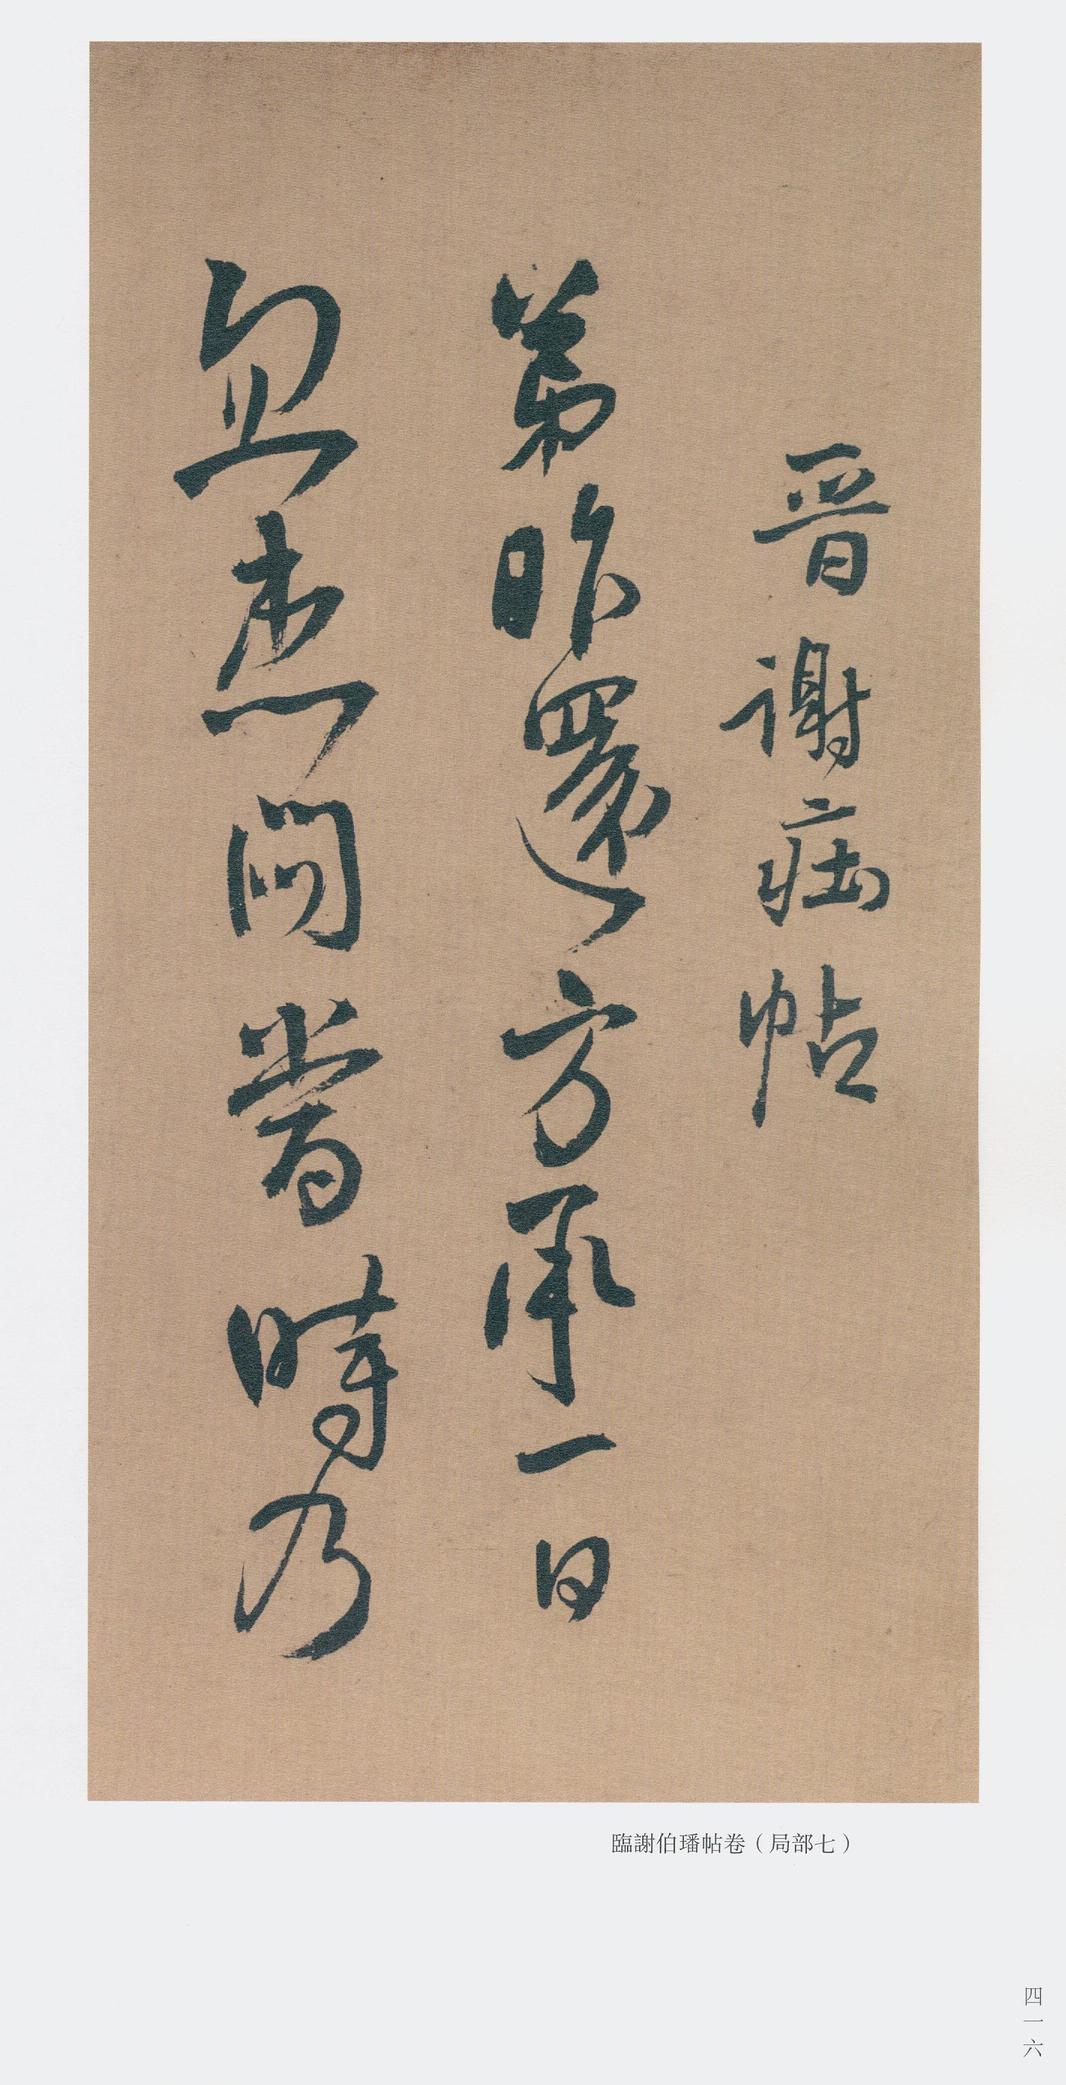 晉謝莊帖
弟昨還方承一日
忽患悶當時乃
臨謝伯璠帖卷（局部七）
四一六